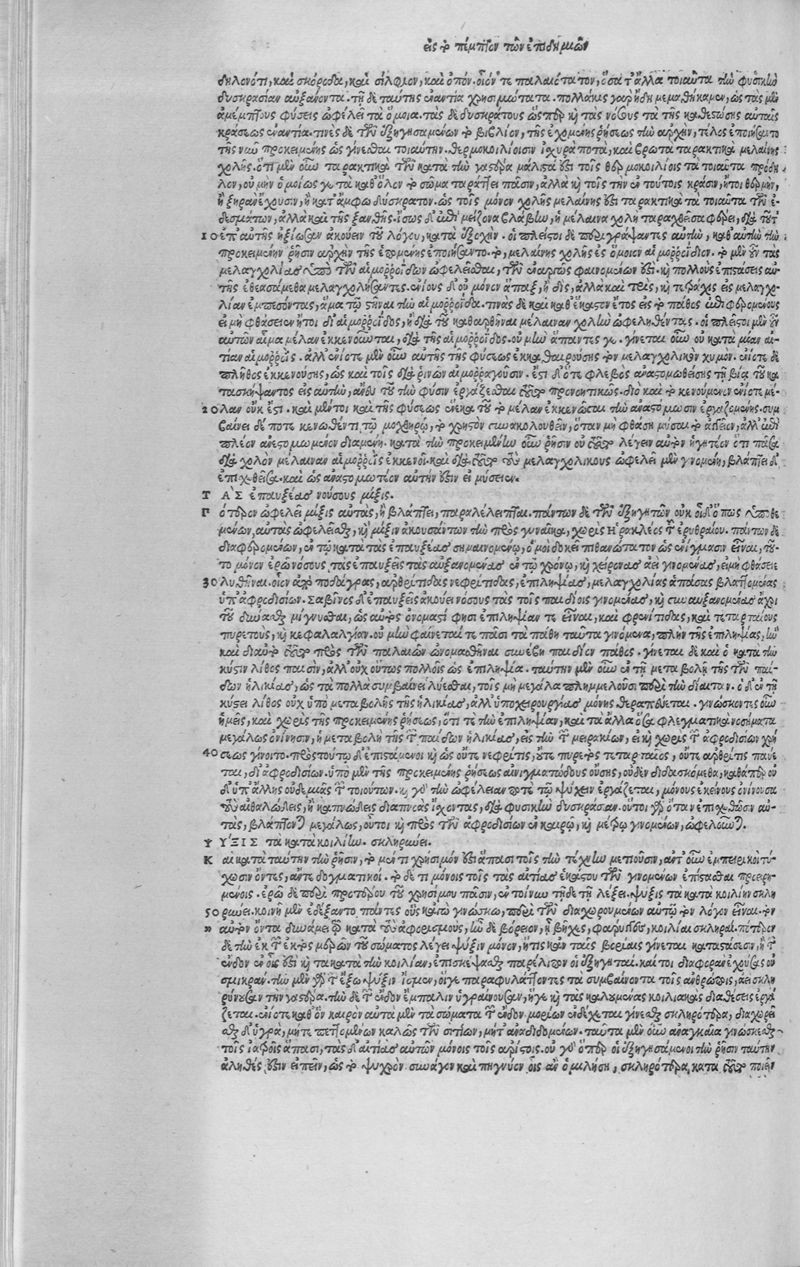 εἰς τὸ πέμπτον τῶν ἐπιδημιῶν
δηλονότι, καὶ σκόροδα, καὶ σίλφιον, καὶ ὀπόν. οἶόν τε παλαιότατον, ὅσα τ' ἄλλα τοιαῦτα τὴν φυσικὴν
δυσκρασίαν αὐξάνοντα. τῇ δὲ ταύτης ἐναντία χρησιμώτατα. πολλάκις γὰρ ἤδη μεμαθήκαμεν, ὡς τὰς μὲν
ἀμέμπτους φύσεις ὠφελεῖ τὰ ὅμοια. τὰς δὲ δυσκράτους ὥσπερ καὶ τὰς νόσους τὰ τῆς καθεστώσης αὐταῖς
κράσεως ἐναντία. τινὲς δὲ τῶν ἐξηγησαμένων τὸ βιβλίον, τῆς ἐχομένης ῥήσεως τὴν ἀρχὴν, τέλος ἐποιήσαντο
τῆς νῦν προκειμένης ὡς γίνεσθαι τοιαύτην. θερμοκοιλίοισιν ἰσχυρὰ ποτὰ, καὶ βρωτὰ ταρακτικὰ μελαίνης
χολῆς. ὅτι μὲν οὖν ταρακτικὰ τῶν κατὰ τὴν γαστέρα μάλιστά ἐστι τοῖς θερμοκοιλίοις τὰ τοιαῦτα πρόδη
λον, οὐ μὴν ὁμοίως γε τὰ καθ' ὅλον τὸ σῶμα ταράττει πᾶσιν, ἀλλὰ καὶ τοῖς τὴν ἐν τούτοις κρᾶσιν, ἤτοι θερμὴν,
ἢ ξηρὰν ἔχουσιν, ἢ κατ' ἄμφω δύσκρατον. ὡς τοῖς μόνον χολῆς μελαίνης ἐστὶ ταρακτικὰ τὰ τοιαῦτα τῶν ἐ-
δεσμάτων, ἀλλὰ καὶ τῆς ξανθῆς. ἴσως δ' ἐπεὶ μείζονα βλάβην, ἡ μέλαινα χολὴ ταραχθεῖσα φέρει, διὰ τοῦτ'
10 ἐπ' αὐτῆς ἠξίωσαν ἀκούειν τοῦ λόγου, κατὰ ἐξοχήν. οἱ πλεῖστοι δὲ περιγράψαντες αὐτὴν, καθ' αὑτὴν τὴν
προκειμένην ῥῆσιν ἀρχὴν τῆς ἑπομένης ἐποιήσαντο. τὸ, μελαίνης χολῆς ἐς ὅμοιον αἱμορροΐδιον. τὸ μὲν οὖν τὰς
μελαγχολίας ὑπὸ τῶν αἱμορροΐδων ὠφελεῖσθαι, τῶν ἐναργῶς φαινομένων ἐστί. καὶ πολλοὺς ἐπισχέσεις αὐ-
τῆς ἐθεασάμεθα μελαγχολήσαντες. ἐνίους δ' οὐ μόνον ἅπαξ, ἢ δὶς, ἀλλὰ καὶ τρὶς, καὶ τετράκις εἰς μελαγχο-
λίαν ἐμπεσόντας, ἅμα τῷ στῆναι τὴν αἱμορροΐδα. τινὰς δὲ καὶ καθ' ἕκαστον ἔτος εἰς τὸ πάθος ὑποφερομένους
εἰ μὴ φθάσειεν ἤτοι δι' αἱμορροΐδος, ἢ διὰ τοῦ καθαρθῆναι μέλαιναν χολὴν ὠφεληθέντας. οἱ πλεῖστοι μὲν οὖν
αὐτῶν αἷμα μέλαν ἐκκενοῦνται, διὰ τῆς αἱμορροΐδος. οὐ μὴν ἅπαντές γε. γίνεται οὖν οὐ κατὰ μίαν αἰ-
τίαν αἱμορροΐς. ἀλλ' ἐνίοτε μὲν οὖν αὐτῆς τῆς φύσεως ἐκκαθαιρούσης τὸν μελαγχολικὸν χυμόν. ἐνίοτε δὲ
πλῆθος ἐκκενούσης, ὡς καὶ τοῖς διὰ ῥινῶν αἱμορραγοῦσιν. ἔστι δ' ὅτε φλεβὸς ἀναστομωθείσης τῇ βίᾳ τοῦ κα
τασκήψαντος εἰς αὐτὴν, ἄνευ τοῦ τὴν φύσιν ἐργάζεσθαι τοῦτο προνοητικῶς. διὸ καὶ τὸ κενούμενον ἐνίοτε μέ-
20 λαν οὐκ ἔστι. καὶ μέντοι καὶ τῆς φύσεως ἕνεκα τοῦ τὸ μέλαν ἐκκενῶσαι τὴν ἀναστόμωσιν ἐργαζομένης. συμ
βαίνει δέ ποτε κενωθέντι τῷ μοχθηρῷ, τὸ χρηστὸν συνακολουθεῖν, ὅταν μὴ φθάσῃ μύσαι τὸ ἀγγεῖον, ἀλλ' ἐπὶ
πλέον ἀνεστομωμένον διαμένῃ. κατὰ τὴν προκειμένην οὖν ῥῆσιν οὐ τοῦτο λέγειν αὐτὸν ἡγητέον ὅτι πᾶσα
διὰ χολὸν μέλαιναν αἱμορροῒς ἐκκενοῖ. καὶ διὰ τοῦτο τοὺς μελαγχολικοὺς ὠφελεῖ μὲν γινομένη, βλάπτει δ'
ἐπισχεθεῖσα. καὶ ὡς ἀναστομωτέον αὐτήν ἐστιν εἰ μύσειεν.
Τ ΑΣ ἐπαυξέας νούσους μίξις.
Γ ότερον ὠφελεῖ μίξις αὐτὰς, ἢ βλάπτει, παραλέλειπται. πάντων δὲ τῶν ἐξηγητῶν οὐκ οἶδ' ὅπως ὑποθε
μένων, αὐτὰς ὠφελεῖσθαι, καὶ μίξιν ἀκουσάντων τὴν πρὸς γυναῖκα, χωρὶς Ἡρακλέος τοῦ ἐρυθραίου. πάντων δὲ
διαφερομένων, ἐν τῷ κατὰ τὰς ἐπαυξέας σημαινομένῳ, ὅ μοι δοκεῖ πιθανώτατον ὡς ἐν αἰνίγμασιν εἶναι, τοῦ-
το μόνον ἐρῶ νόσους τὰς ἐπαυξεῖς τὰς αὐξανομένας ἐν τῷ χρόνῳ, καὶ χείρονας ἀεὶ γινομένας, εἰ μὴ φθάσειε
30 λυθῆναι. οἷον ἀπὸ ποδάγρας, ἀρθρίτιδας νεφρίτιδας, ἐπιληψίας, μελαγχολίας ἁπάσας βλαπτομένας
ὑπ' ἀφροδισίων. Σαβῖνος δ' ἐπαυξεῖς ἀκούει νόσους τὰς τοῖς παιδίοις γινομένας, καὶ συναυξανομένας ἄχρι
τοῦ δύνασθαι μίγνυσθαι, ὡς αὐτὸς ὀνομαστί φησι ἐπιληψίαν τε εἶναι, καὶ φρονίτιδας, καὶ τεταρταίους
πυρετοὺς, καὶ κεφαλαλγίαν. οὐ μὴν φαίνεταί τε παισὶ τὰ πάθη ταῦτα γινόμενα, πλὴν τῆς ἐπιληψίας, ἣν
καὶ διὰ τοῦτο πρὸς τῶν παλαιῶν ὀνομασθῆναι συνέβη παιδίον πάθος. γίνεται δὲ καὶ ὁ κατὰ τὴν
κύστιν λίθος παισὶν, ἀλλ' οὐχ οὕτως πολλοῖς ὡς ἐπιληψία. ταύτην μὲν οὖν ἐν τῇ μεταβολῇ τῆς τῶν παί-
δων ἡλικίας, ὡς τὰ πολλὰ συμβαίνει λύεσθαι, τοῖς μὴ μεγάλα πλημμελοῦσι περὶ τὴν δίαιταν. ὁ δ' ἐν τῇ
κύστει λίθος οὐχ ὑπὸ μεταβολῆς τῆς ἡλικίας, ἀλλ' ὑπὸ χειρουργίας μόνης θεραπεύεται. γινώσκοντες οὖν
ἡμεῖς, καὶ χωρὶς τῆς προκειμένης ῥήσεως, ὅτι τε τὴν ἐπιληψίαν, καὶ τὰ ἄλλα ὅσα φλεγματικὰ νοσήματα
μεγάλως ὀνίνησιν, ἡ μεταβολὴ τῆς τῶν παίδων ἡλικίας, εἰς τὴν τῶν μειρακίων, εἰ καὶ χωρὶς τῶν ἀφροδισίων χρή
40 σεως γίνοιτο. πρὸς τούτῳ δ' ἐπιστάμενοι καὶ ὡς οὔτε νεφρῖτις, οὔτε πυρετὸς τεταρταῖος, οὔτε ἀρθρῖτις παύε
ται, δι' ἀφροδισίων. ὑπὸ μὲν τῆς προκειμένης ῥήσεως αἰνιγματώδους οὔσης, οὐδὲν διδασκόμεθα, καθάπερ οὐ
δ' ὑπ' ἄλλης οὐδεμιᾶς τῶν τοιούτων. καὶ γὰρ τὴν ὠφέλειαν τότε τῷ ψύχειν ἐργάζεται, μόνους ἐκείνους ὀνίνουσα
τοὺς αἰθαλώδεις, ἢ καπνώδεις διαπνοὰς ἔχοντας, διὰ φυσικὴν δυσκρασίαν. οὗτοι γὰρ ὅταν ἐπισχεθῶσιν αὐ-
τὰς, βλάπτονται μεγάλως, οὗτοι καὶ πρὸς τῶν ἀφροδισίων ἐν καιρῷ, καὶ μέτρῳ γινομένων, ὠφελοῦνται.
Ψ ΥΞΙΣ τὰ κατὰ κοιλίην. σκληρώει.
Κ αὶ κατὰ ταύτην τὴν ῥῆσιν, τὸ μέν τι χρήσιμόν ἐστι ἅπασι τοῖς τὴν τέχνην μετιοῦσιν, ἄντ' οὖν ἐμπειρικοὶ τύ-
χωσιν ὄντες, ἄντε δογματικοί. τὸ δέ τι μόνοις τοῖς τὰς αἰτίας ἑκάστου τῶν γινομένων ἐπίστασθαι προῃρη-
μένοις. ἐρῶ δὲ περὶ προτέρου τοῦ χρησίμου πᾶσιν, ἐν τοίνυν τῇδε τῇ λέξει. ψῦξις τὰ κατὰ κοιλίην σκλη
50 ρώει. κοινῇ μὲν ἐδέξαντο πάντες οὓς κἀγὼ γινώσκω, περὶ τῶν διαχωρουμένων αὐτῷ τὸν λόγον εἶναι. τὸν
» αὐτὸν ὄντα δυνάμει τῷ κατὰ τοὺς ἀφορισμοὺς, ἢν δὲ βόρειον, ἢ βῆχες, φάρυγγες, κοιλίαι σκληραί. πότερον
δὲ τὴν ἐκ τῶν ἐκτὸς μερῶν τοῦ σώματος λέγει ψῦξιν μόνον, ἥτις κἂν ταῖς βορείαις γίνεται καταστάσεσιν, ἢ τῶν
ἔνδον ἐν οἷς ἐστι καὶ τὰ κατὰ τὴν κοιλίαν, ἐπισκέψασθαι παρέλιπον οἱ ἐξηγηταί. καί τοι διαφορὰν ἐχούσης οὐ
σμικράν. τὴν μὲν γὰρ τῶν ἔξω ψῦξιν ἴσμεν, οἵ γε παραφυλάττοντες τὰ συμβαίνοντα τοῖς ἀνθρώποις, ἀεὶ σκλη
ρύνουσαν τὴν γαστέρα. τὴν δὲ τῶν ἔνδον ἔμπαλιν ὑγραίνουσαν, ἥγε καὶ τὰς καλουμένας κοιλιακὰς διαθέσεις ἐργά
ζεται. ἐνίοτε καθ' ὃν καιρὸν αὐτὰ μὲν τὰ σώματα τῶν ἔνδον μορίων ἐνδέχεται γίνεσθαι σκληρότερα, διαχωρεῖ
σθαι δ' ὑγρὰ, μήτε πεττομένων καλῶς τῶν σιτίων, μήτ' ἀναδιδομένων. ταῦτα μὲν οὖν ἀναγκαῖα γινώσκεσθαι
τοῖς ἰατροῖς ἅπασι, τὰς δ' αἰτίας αὐτῶν μόνοις τοῖς ἀρίστοις. οὐ γὰρ ὅπερ οἱ ἐξηγησάμενοι τὴν ῥῆσιν ταύτην
ἀληθές ἐστιν εἰπεῖν, ὡς τὸ ψυχρὸν συνάγον καὶ πηγνύον οἷς ἂν ὁμιλήσῃ, σκληρότερα, κατὰ τοῦτο ποιεῖν